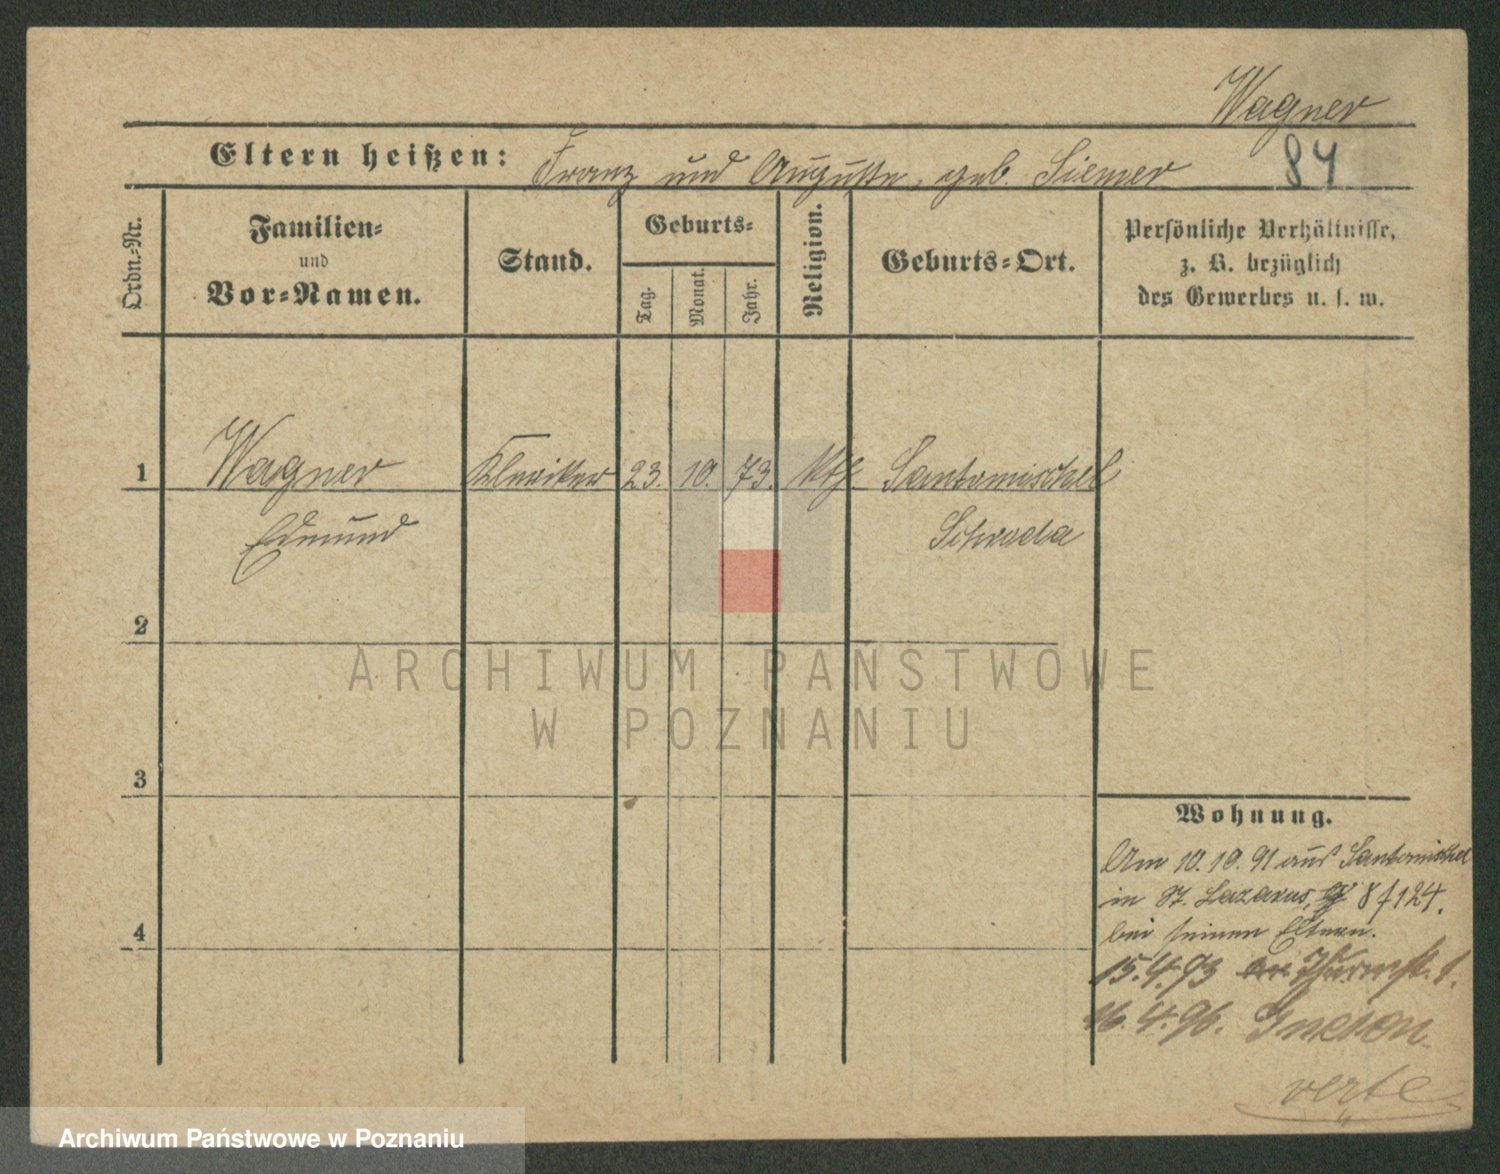 Wagner
Eltern heißen: Franz und Auguste, geb. Siemer
84
Ordn.-Nr.
Familien-
und
Vor-Namen.
Stand.
Geburts-
Tag.
Monat.
Jahr.
Religion.
Geburts-Ort.
Persönliche Verhältnisse,
z. B. bezüglich
des Gewerbes u. s. w.
1 Wagner Kleriker 23. 10. 73. kth. Santomischel
Edmund Schroda
2
3
4
Wohnung.
Am 10.10.91 aus Santomischel
in St. Lazarus, 8 f 124.
bei seinen Eltern.
15.4.93 Thurmst. 1.
16.4.96. Gnesen
verte
ARCHIWUM PAŃSTWOWE
W POZNANIU
Archiwum Państwowe w Poznaniu